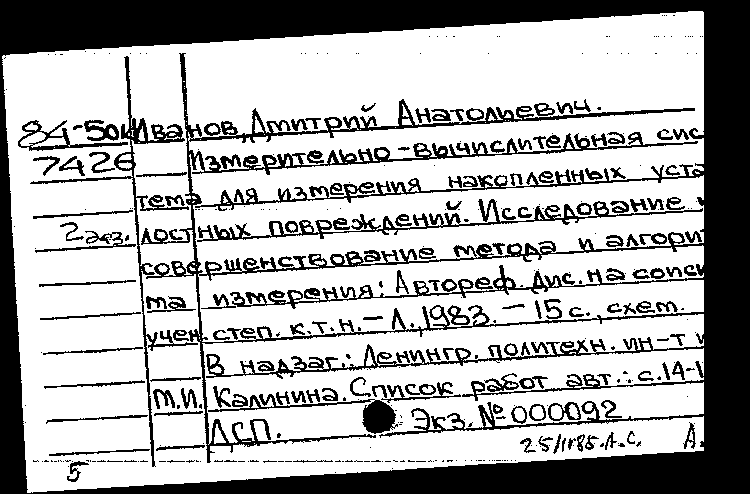 84-50к Иванов, Дмитрий Анатольевич.
7426 Измерительно-вычислительная сис
тема для измерения накопленных уста
2 экз. лостных повреждений. Исследование и
совершенствование метода и алгорит
ма измерения: Автореф. дис. на соиск
учен. степ. к.т.н. – Л., 1983. – 15 с., схем.
В надзаг.: Ленингр. политехн. ин-т и
М.И. Калинина. Список работ авт.: с. 14-1
ДСП. Экз. № 000092
25/IV85. А.С. А.
5